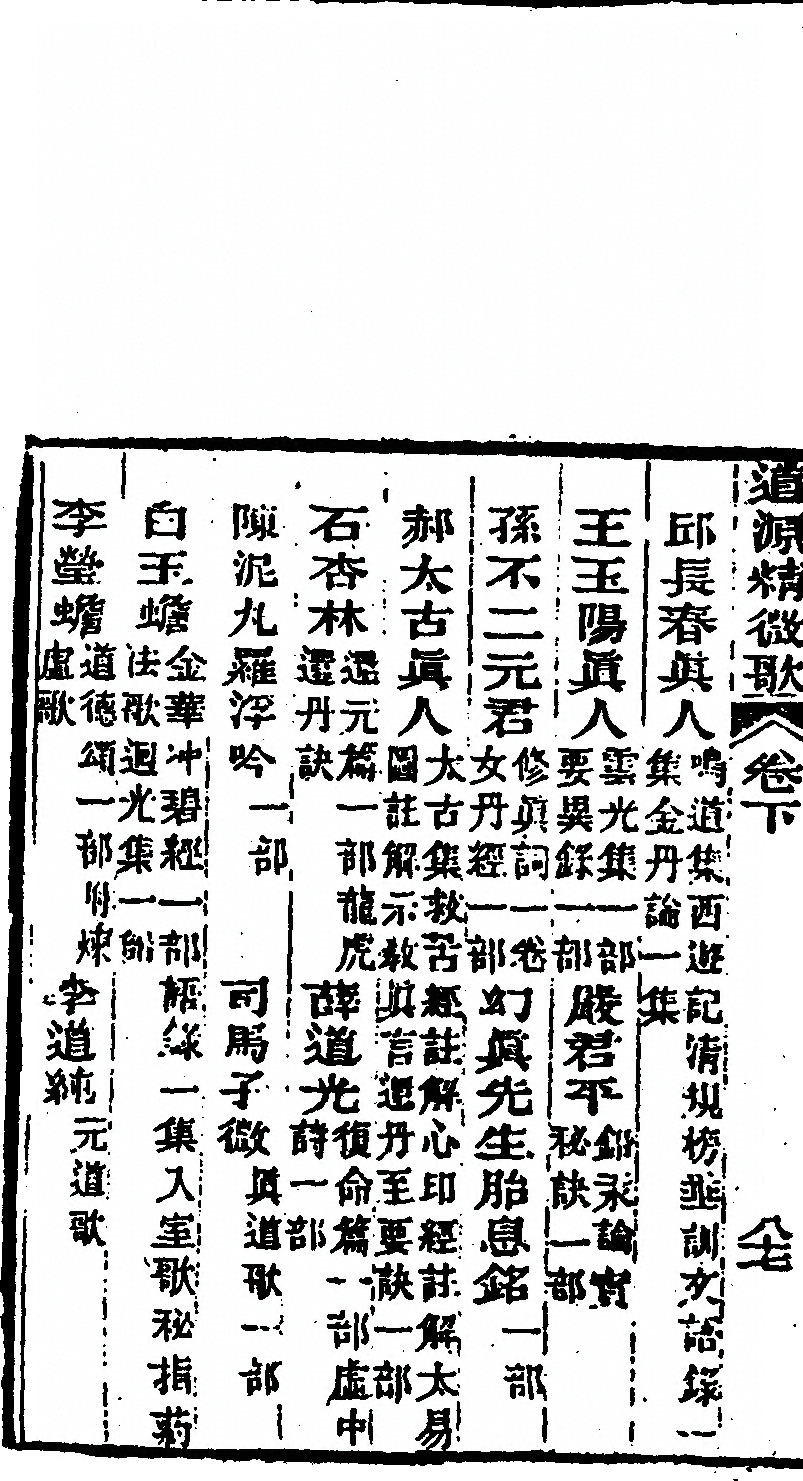 道源精微歌 卷下 八七
邱長春眞人 鳴道集西遊記清規榜並訓女語錄一
集金丹論一集
王玉陽眞人 雲光集一部
要異錄一部 嚴君平 鉛汞論寶
秘訣一部
孫不二元君 修眞詞一卷
女丹經一部 幻眞先生胎息銘 一部
郝太古眞人 太古集救苦經註解心印經註解太易
圖註解示教眞言還丹至要訣一部
石杏林 還元篇一部龍虎
還丹訣 薛道光 復命篇一部虛中
詩一部
陳泥丸 羅浮吟一部 司馬子微 眞道歌一部
白玉蟾 金華冲碧經一部語錄一集入室歌秘指葯
法歌迴光集一部
李瑩蟾 道德頌一部附煉
虛歌 李道純 元道歌